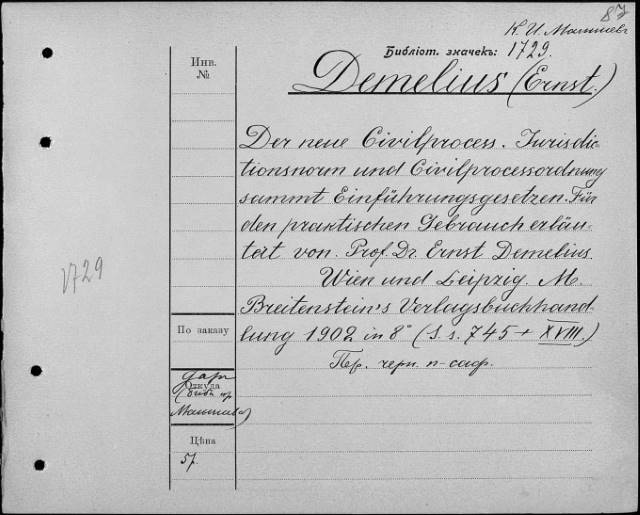 87
К. И. Малышев
Библіот. значекъ: 1729.
Demelius (Ernst.)
Инв.
№
Der neue Civilprocess. Jurisdic-
tionsnorm und Civilprocessordnung
sammt Einführungsgesetzen. Für
den praktischen Gebrauch erläu-
tät von. Prof. Dr. Ernst Demelius.
Wien und Leipzig. M.
Breitenstein's Verlagsbuchhand-
lung 1902 in 8° (S. s. 745 + XVIII.)
Пер. черн. п-саф.
1729
По заказу
даръ
Откуда
Малышева)
Цѣна
5 р.